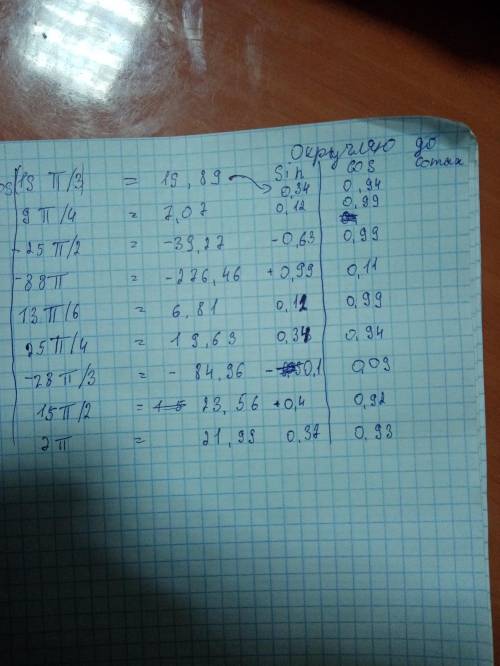 Округляю до
сотых
sin cos
cos 19 π/3 = 19,89 0,34 0,94
9 π/4 = 7,07 0,12 0,99
-25 π/2 = -39,27 -0,63 0,99
-88π = -276,46 +0,99 0,11
13 π/6 = 6,81 0,12 0,99
25 π/4 = 19,63 0,34 0,94
-28 π/3 = - 84,96 - 0,1 0,09
15 π/2 = 23,56 +0,4 0,92
2 π = 21,99 0,37 0,93